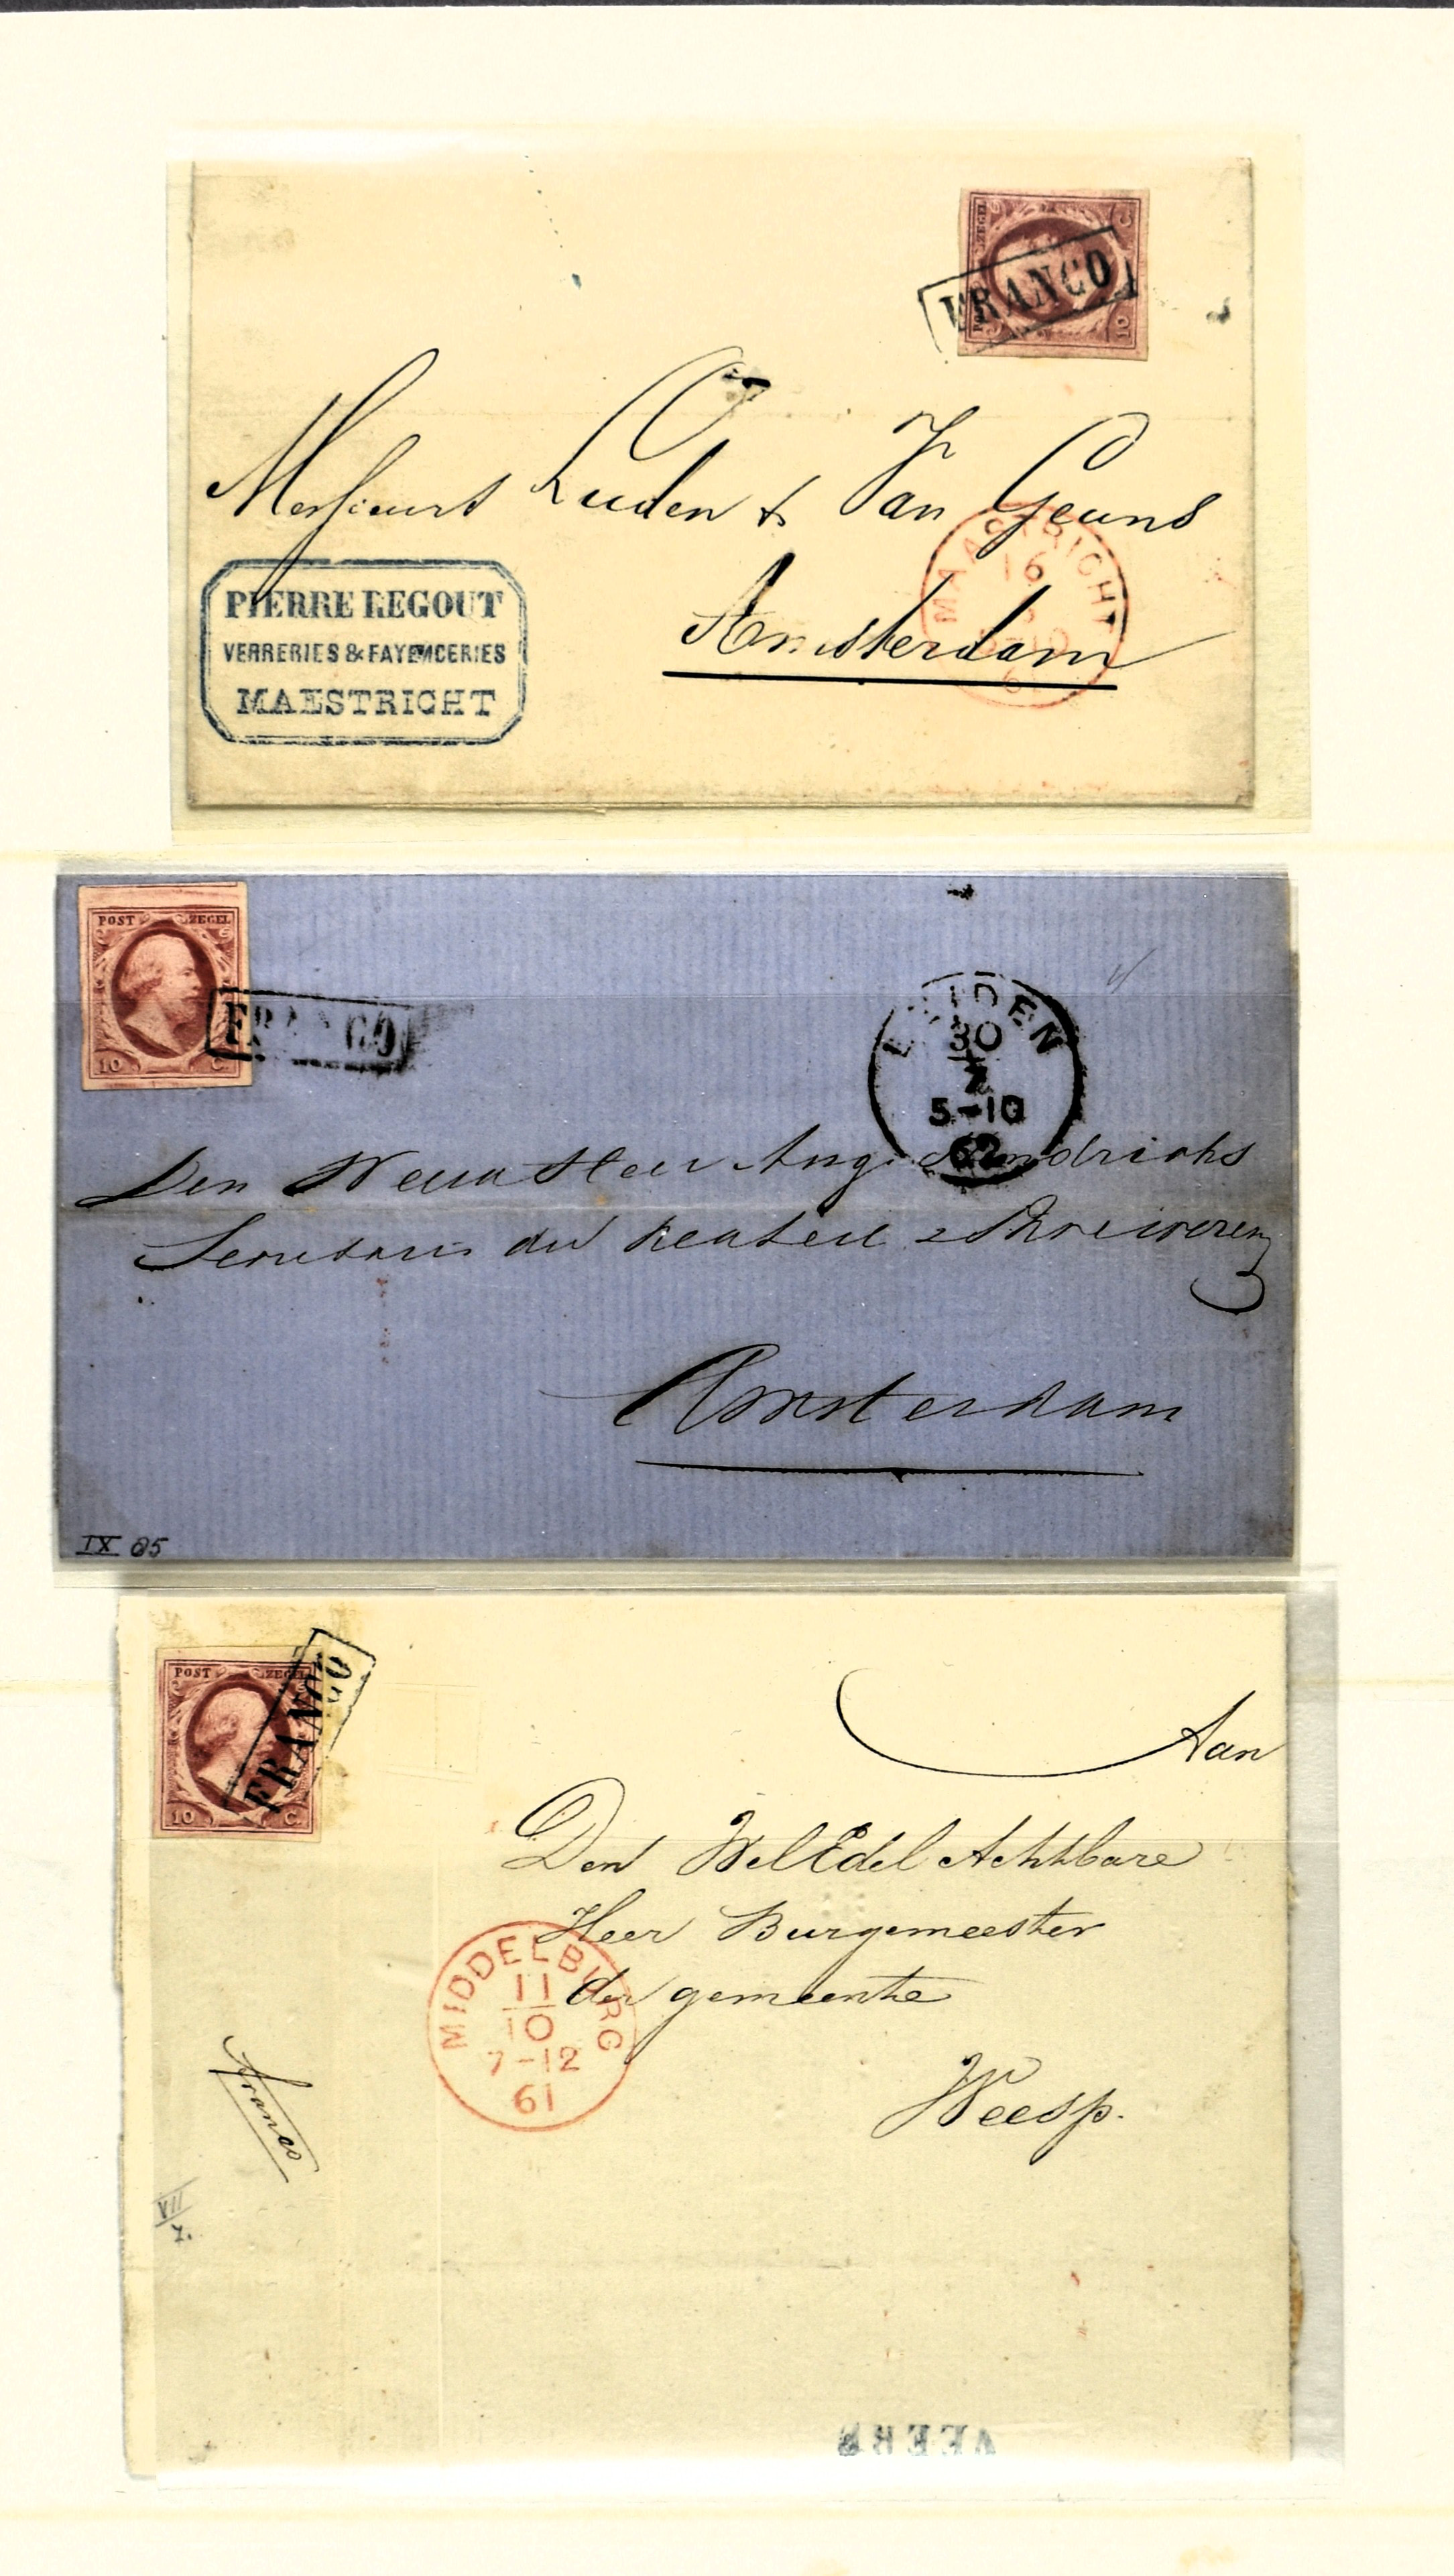 ZEGEL
C
10
FRANCO
Messieurs Luden & Van Geuns
Amsterdam
MAASTRICHT
16
PIERRE REGOUT
VERRERIES & FAYENCERIES
MAESTRICHT
POST ZEGEL
10 C.
FRANCO
LEIDEN
30
5-10
62
Den Heer Aug. Hendrichs
Amsterdam
IX 85
POST ZEGEL
10 C.
FRANCO
Aan
Den WelEdel Achtbare
Heer Burgemeester
der gemeente
Weesp.
MIDDELBURG
11
10
7-12
61
franco
VII
7.
VEERE